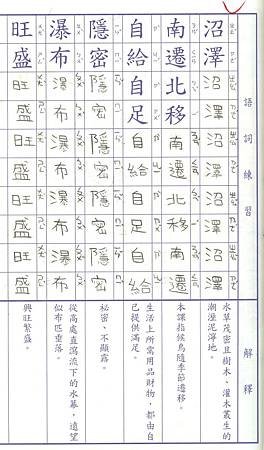 語詞練習
解釋
沼澤沼澤沼澤沼澤沼澤
水草茂密且樹木、灌木叢生的
潮溼泥濘地。
南遷北移南遷北移南遷
本課指候鳥隨季節遷移。
自給自足自給自足自給
生活上所需用品財物,都由自
己提供滿足。
隱密隱密隱密隱密隱密
祕密、不顯露。
瀑布瀑布瀑布瀑布瀑布
從高處直瀉流下的水幕,遠望
似布匹垂落。
旺盛旺盛旺盛旺盛旺盛
興旺繁盛。